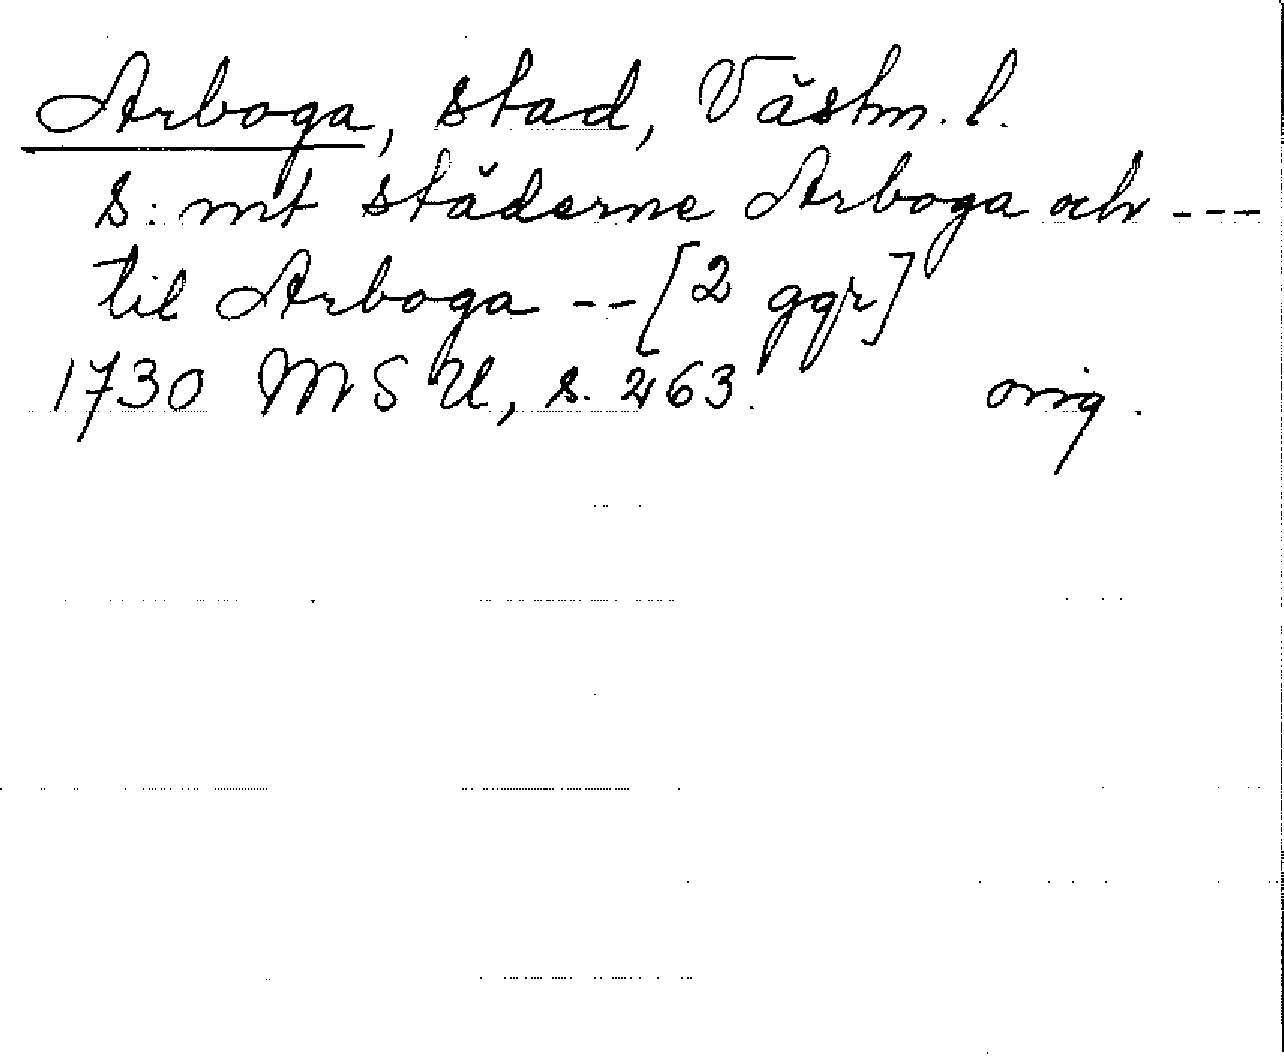 Arboga, stad, Västm. l.
s: mt städerne Arboga och ---
til Arboga -- [2 ggr]
1730 MSU, s. 263. orig.